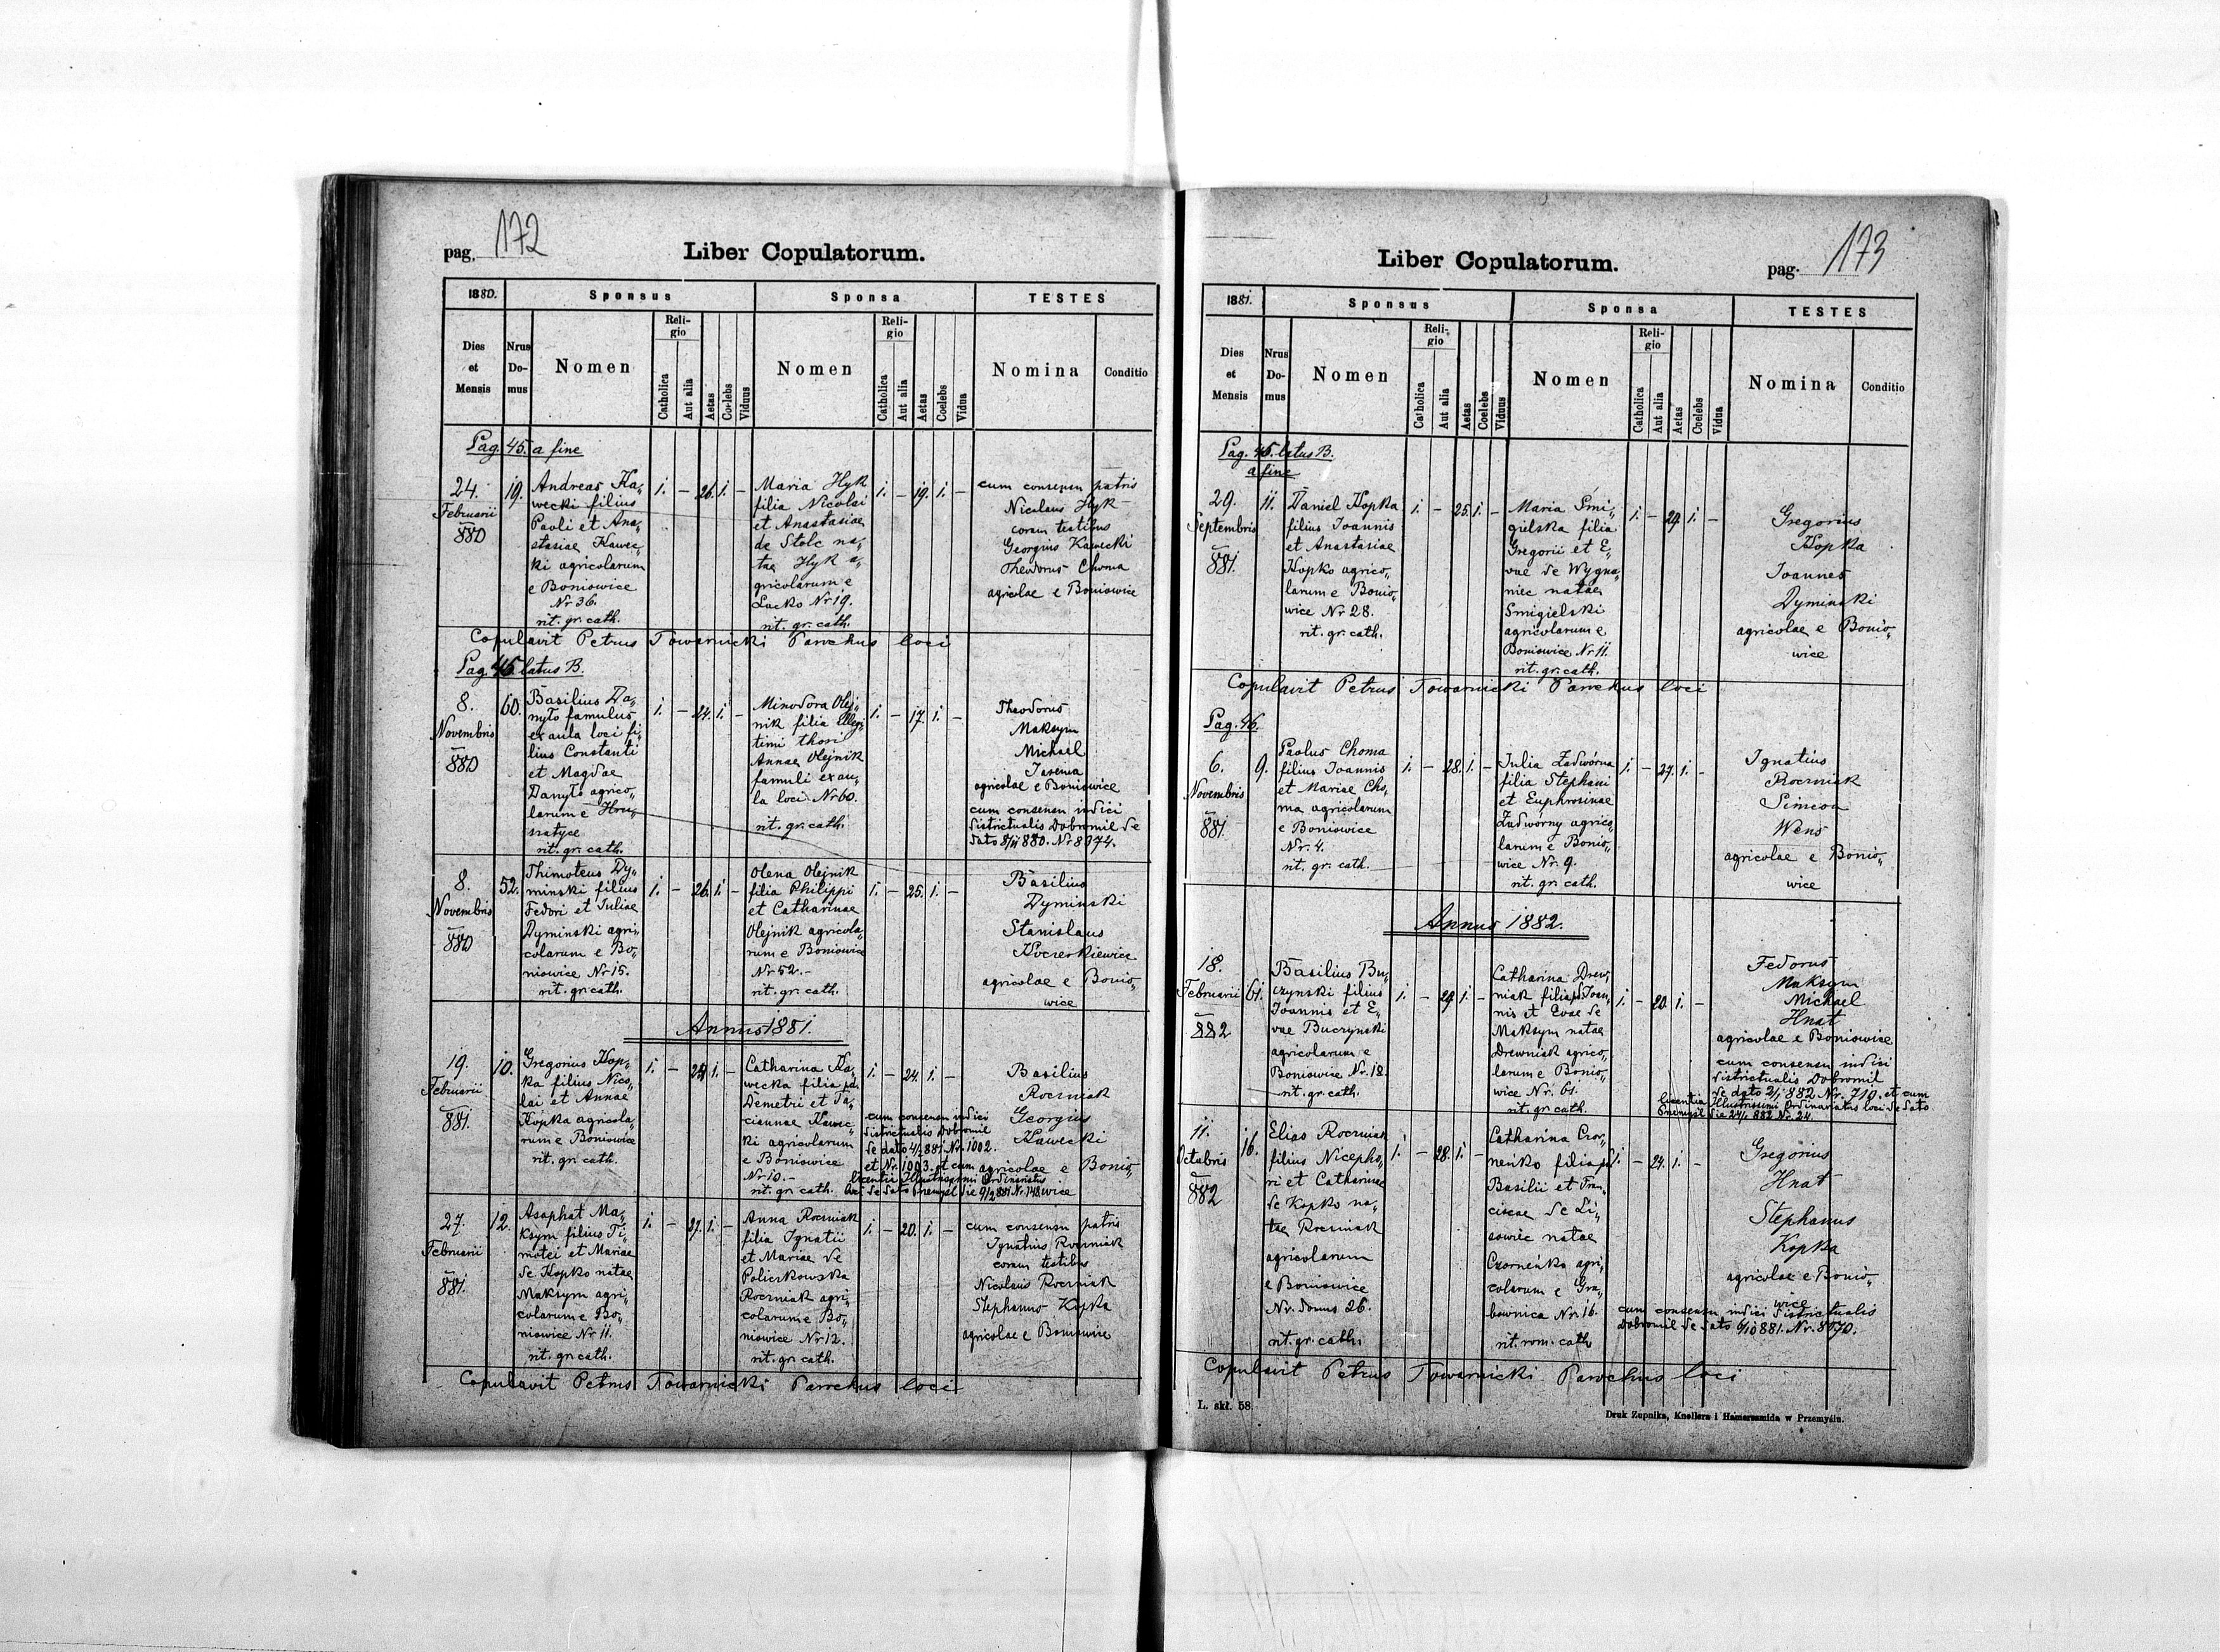 pag. 172
Liber Copulatorum.
1880.
Sponsus
Sponsa
TESTES
Dies et Mensis
Nrus Do- mus
Nomen
Reli- gio
Catholica
Aut alia
Aetas
Coelebs
Viduus
Nomen
Reli- gio
Catholica
Aut alia
Aetas
Coelebs
Vidua
Nomina
Conditio
Pag. 45. a fine
24.
Februarii
880
19.
Andreas Ka„
wecki filius
Pauli et Ana„
stasiae Kawec„
ki agricolarum
e Boniowice
Nr 36.
rit. gr. cath.
1. – 26. 1. –
Maria Hyk
filia Nicolai
et Anastasiae
de Stolc na„
tae Hyk a„
gricolarum e
Lacko Nr 19.
rit. gr. cath.
1. – 19. 1. –
cum consensu patris
Nicolaus Hyk
coram testibus
Georgius Kawecki
Theodorus Choma
agricolae e Boniowice
Copulavit Petrus Towarnicki Parochus loci
Pag. 45 latus B.
8.
Novembris
880
60.
Basilius Da„
nyło famulus
ex aula loci fi„
lius Constanti
et Magdae
Danyło agrico„
larum e
rit. gr. cath.
1. – 24. 1. –
Minodora Olej„
nik filia illegi„
timi thori
Annae Olejnik
famuli ex au„
la loci Nr 60.
rit. gr. cath.
1. – 17. 1. –
Theodorus
Maksym
Michael
agricolae e Boniowice
cum consensu iudici
districtualis Dobromil de
dato 8/11 880. Nr 8374.
8.
Novembris
880
52.
Thimoteus Dy„
minski filius
Fedori et Iuliae
Dyminski agri„
colarum e Bo„
niowice Nr 15.
rit. gr. cath.
1. – 26. 1. –
Olena Olejnik
filia Philippi
et Catharinae
Olejnik agricola„
rum e Boniowice
Nr 52.–
rit. gr. cath.
1. – 25. 1. –
Basilius
Dyminski
Stanislaus
agricolae e Bonio„
wice
Annus 1881.
19.
Februarii
881.
10.
Gregorius Kop„
ka filius Nico„
lai et Annae
Kopka agricola„
rum e Boniowice
rit. gr. cath.
1. – 24. 1. –
Catharina Ka„
wecka filia pd.
Demetri et Ta„
ciannae Kawec„
ki agricolarum
e Boniowice
Nr 10.–
rit. gr. cath.
1. – 24. 1. –
Basilius
Roczniak
Georgius
Kawecki
agricolae e Bonio„
wice
cum consensu iudici
districtualis Dobromil
de dato 4/2 881 Nr. 1002.
et Nr. 1003. et cum
licentia Illustrissimi Ordinariatus
loci de dato Premysl die 9/2 881 Nr. 148
27.
Februarii
881.
12.
Asaphat Ma„
ksym filius Ti„
motei et Mariae
de Kopko natae
Maksym agri„
colarum e Bo„
niowice Nr 11.
rit. gr. cath.
1. – 27. 1. –
Anna Roczniak
filia Ignatii
et Mariae de
Policzkowska
Roczniak agri„
colarum e Bo„
niowice Nr 12.
rit. gr. cath.
1. – 20. 1. –
cum consensu patris
Ignatius Roczniak
coram testibus
Nicolaus Roczniak
Stephanus Kopka
agricolae e Boniowice
Copulavit Petrus Towarnicki Parochus loci
Liber Copulatorum.
pag. 173
1881.
Sponsus
Sponsa
TESTES
Dies et Mensis
Nrus Do- mus
Nomen
Reli- gio
Catholica
Aut alia
Aetas
Coelebs
Viduus
Nomen
Reli- gio
Catholica
Aut alia
Aetas
Coelebs
Vidua
Nomina
Conditio
Pag. 45. latus B.
a fine
29.
Septembris
881.
11.
Daniel Kopka
filius Ioannis
et Anastasiae
Kopko agrico„
larum e Bonio„
wice Nr 28.
rit. gr. cath.
1. – 25. 1. –
Maria Smi„
gielska filia
Gregorii et E„
vae de Wygna„
niec natae
Smigielski
agricolarum e
Boniowice Nr 11.
rit. gr. cath.
1. – 29. 1. –
Gregorius
Kopka
Ioannes
Dyminski
agricolae e Bonio„
wice
Copulavit Petrus Towarnicki Parochus loci
Pag. 46.
6.
Novembris
881.
9.
Paulus Choma
filius Ioannis
et Mariae Cho„
ma agricolarum
e Boniowice
Nr. 4.
rit. gr. cath.
1. – 28. 1. –
Iulia Zadworna
filia Stephani
et Euphrosinae
Zadworny agrico„
larum e Bonio„
wice Nr. 9.
rit. gr. cath.
1. – 27. 1. –
Ignatius
Roczniak
Simeon
Wens
agricolae e Bonio„
wice
Annus 1882.
18.
Februarii
882
61.
Basilius Bu„
czynski filius
Ioannis et E„
vae Buczynski
agricolarum e
Boniowice Nr. 18.
rit. gr. cath.
1. – 29. 1. –
Catharina Drew„
niak filia pd. Ioan„
nis et Evae de
Maksym natae
Drewniak agrico„
larum e Bonio„
wice Nr. 61.
rit. gr. cath.
1. – 20. 1. –
Fedorus
Maksym
Michael
Hnat
agricolae e Boniowice
cum consensu iudici
districtualis Dobromil
de dato 2/1 882. Nr. 710. et cum
licentia Illustrissimi Ordinariatus loci de dato
Premysl die 24/1 882 Nr. 24.
11.
Octobris
882
16.
Elias Roczniak
filius Nicepho„
ri et Catharinae
de Kopko na„
tae Roczniak
agricolarum
e Boniowice
Nr. domus 26.
rit. gr. cath.
1. – 28. 1. –
Catharina Czor„
neńko filia pd.
Basilii et Fran„
ciscae de Li„
sowiec natae
Czorneńko agri„
colarum e Gra„
bownica Nr. 16.
rit. rom. cath.
1. – 24. 1. –
Gregorius
Hnat
Stephanus
Kopka
agricolae e Bonio„
wice
cum consensu iudici districtualis
Dobromil de dato 6/10 881. Nr. 8070.
Copulavit Petrus Towarnicki Parochus loci
L. skł. 58.
Druk Żupnika, Knollera i Hamerszmida w Przemyślu.